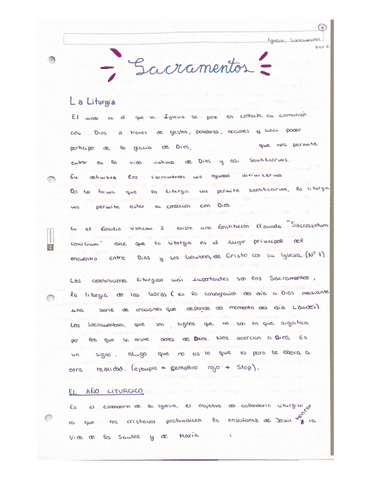 Iglesia, Sacramentos
Sacramentos
La Liturgia
El modo en el que la Iglesia se pone en contacto, en comunión
con Dios a través de gestos, palabras, acciones y hací poder
participar de la gracia de Dios, que nos permite
entrar en la vida intima de Dios y así santificarnos.
En definitiva los sacramentos nos ayudan divinizarnos
De tal forma que la liturgia nos permite santificarnos, la liturgia
nos permite estar en conexión con Dios
En el Concilio Vaticano 2 existe una Constitución llamada "Sacrosantum
Concilium" dice que la liturgia es el lugar principal del
encuentro entre Dios y los hombres, de Cristo con su Iglesia. (Nº 7)
Las celebraciones liturgicas más importantes son los Sacramentos,
la liturgia de las horas (es la consagración del día a Dios mediante
una serie de oraciones que depende do momento del día Laudes)
Los Sacramentos, que son, signos que no son lo que significa
por los que se recibe dones de Dios. Nos acercan a Dios. Es
un signo, algo que no es lo que es pero te lleva a
otra realidad. (ejemplo = semáforo rojo = stop).
EL AÑO LITURGICO
Es el calendario de la Iglesia, el objetivo del calendario liturgico
es que los cristianos profundicen la enseñanza de Jesús y la
vida de los Santos y de María